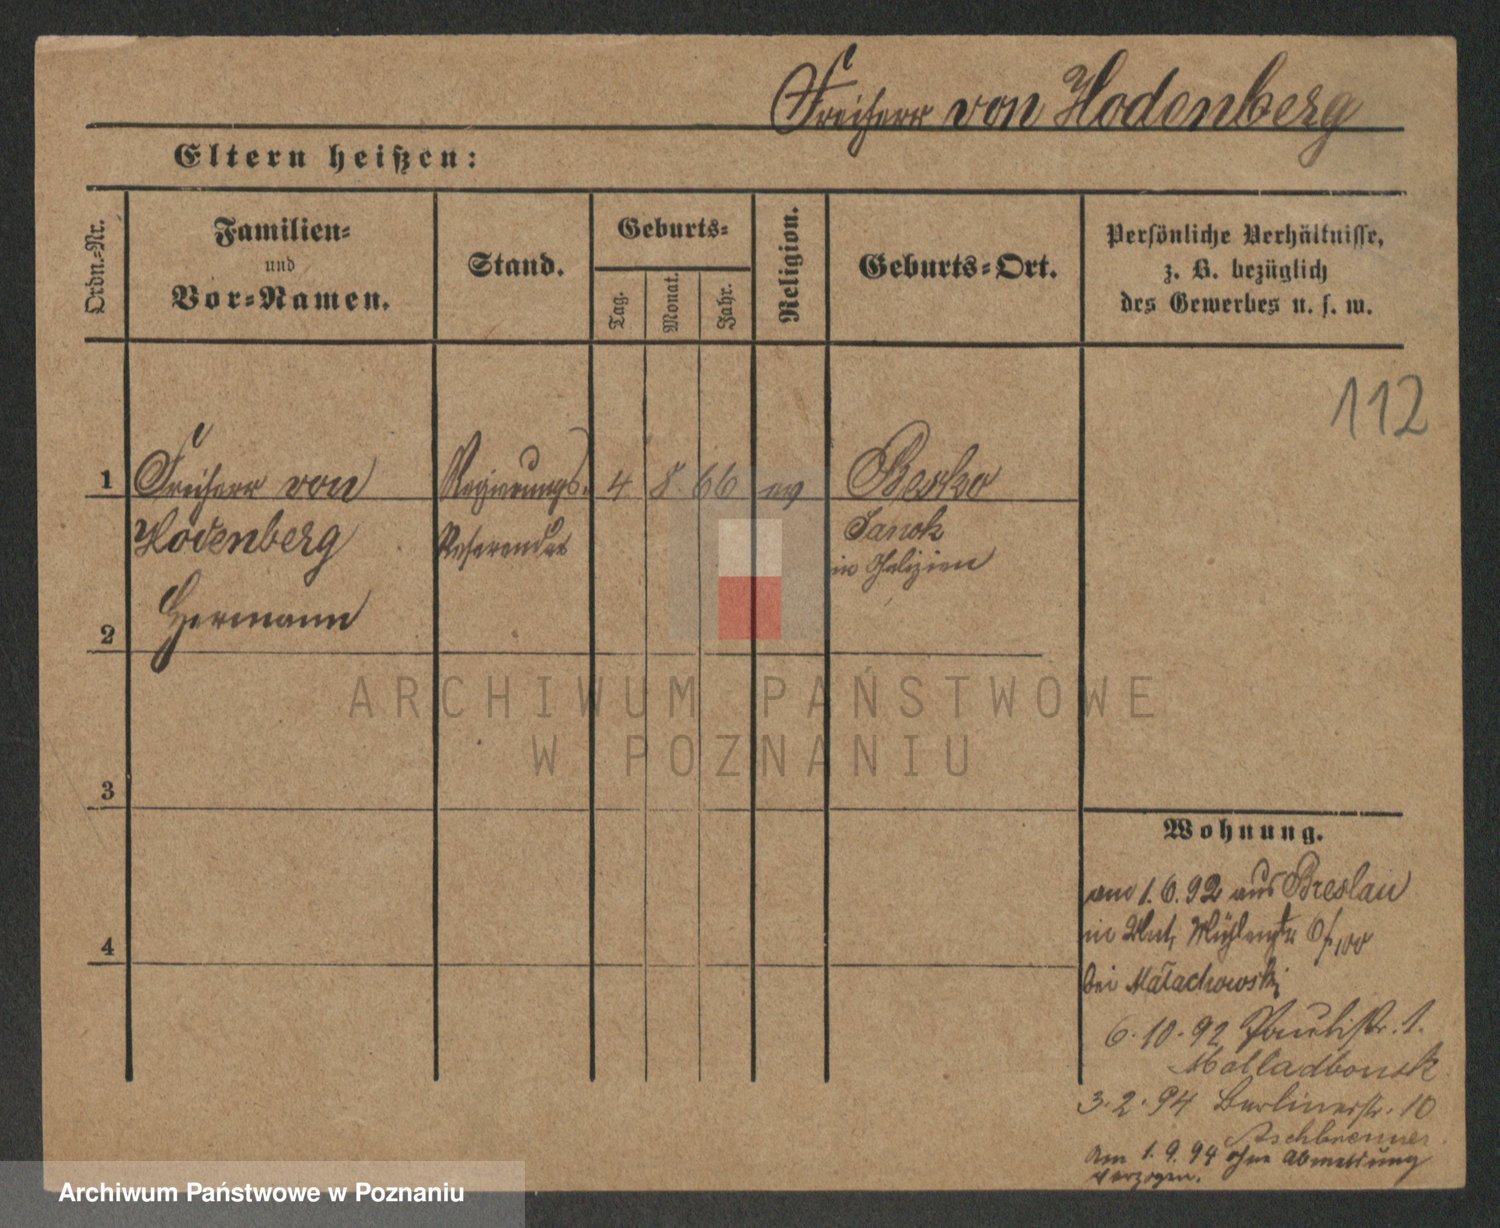 Freiherr von Hodenberg
Eltern heißen:
Ordn.-Nr.
Familien-
und
Vor-Namen.
Stand.
Geburts-
Tag.
Monat.
Jahr.
Religion.
Geburts-Ort.
Persönliche Verhältnisse,
z. B. bezüglich
des Gewerbes u. s. w.
112
1 Freiherr von Regierungs- 4 8 66 ev Besko
Hodenberg Referendar Sanok
in Galizien
Hermann
2
3
4
ARCHIWUM PAŃSTWOWE
W POZNANIU
Wohnung.
am 1. 6. 92 aus Breslau
in Mühlenstr
bei Małachowski
6. 10. 92 Paulistr. 1.
3. 2. 94 Berlinerstr. 10
Aschbrenner
Am 1. 9. 94 ohne Abmeldung
verzogen.
Archiwum Państwowe w Poznaniu